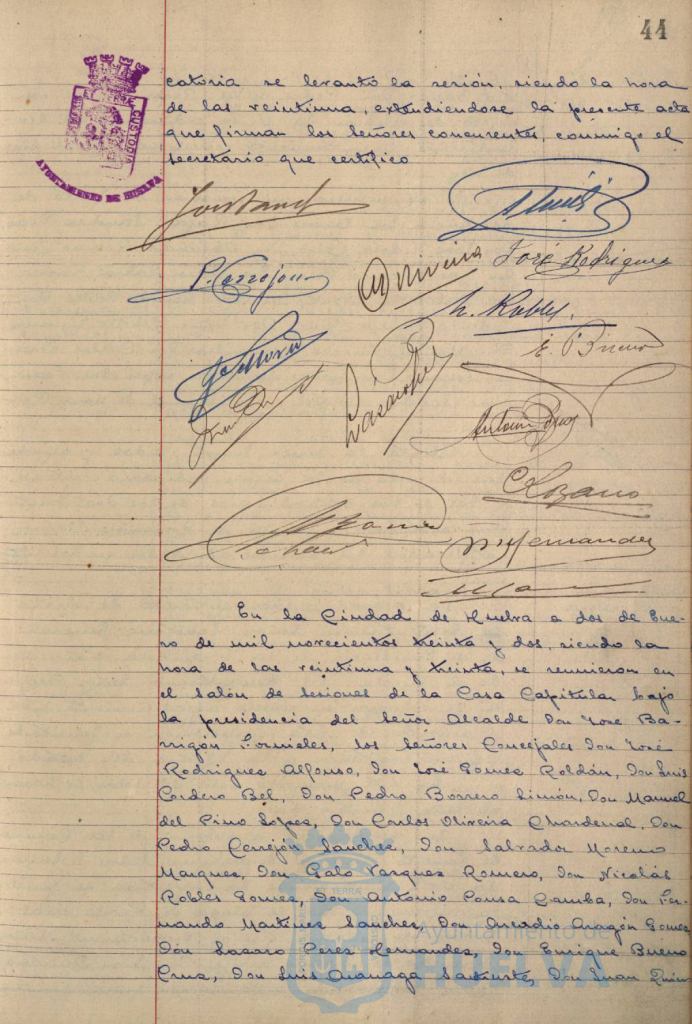 44
CUSTODIA
AYUNTAMIENTO DE HUELVA
catoria se levantó la sesión, siendo la hora
de las veintiuna, extendiéndose la presente acta
que firman los señores concurrentes, conmigo el
secretario que certifico
P. Cerrejón
Oliveira José Rodriguez
N. Robles.
E. Bueno
Antonio Ponsa
C Lozano
Hernandez
En la Ciudad de Huelva a dos de Ene-
ro de mil novecientos treinta y dos, siendo la
hora de las veintiuna y treinta, se reunieron en
el salón de sesiones de la Casa Capitular bajo
la presidencia del señor Alcalde Don José Ba-
rrigón Fornieles, los señores Concejales Don José
Rodriguez Alfonso, Don José Gomez Roldán, Don Luis
Cordero Bel, Don Pedro Borrero Limón, Don Manuel
del Pino Lopez, Don Carlos Oliveira Chardenal, Don
Pedro Cerrejón Sanchez, Don Salvador Moreno
Marquez, Don Galo Vazquez Romero, Don Nicolás
Robles Gomez, Don Antonio Ponsa Camba, Don Fer-
nando Martinez Sanchez, Don Aragón Gomez
Don Lazaro Perez Hernandez, Don Enrique Bueno
Cruz, Don Luis Don Juan
Ayuntamiento de
HUELVA